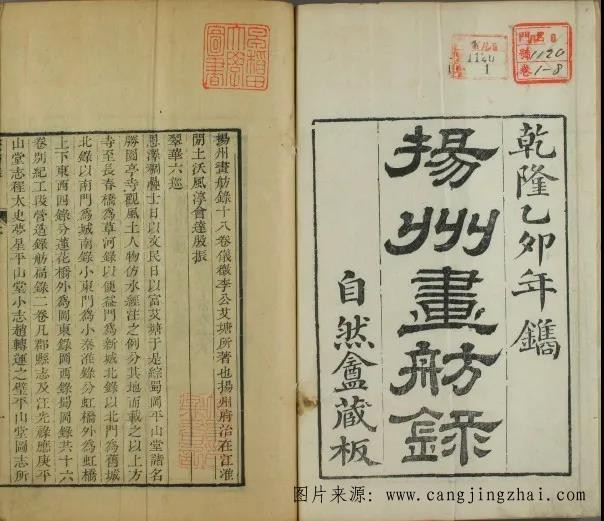 門
號 1120
卷 1-8
1120
1
乾隆乙卯年鐫
揚州畫舫錄
自然盦藏板
早稻田大學圖書
揚州畫舫錄十八卷儀徵李公艾塘所著也揚州府治在江淮
間土沃風淳會達殷振
翠華六巡
恩澤稠疊士日以文民日以富艾塘于是綜蜀岡平山堂諸名
勝園亭寺觀風土人物仿水經注之例分其地而載之以上方
寺至長春橋為草河錄以便益門為新城北錄以北門為舊城
北錄以南門為城南錄小東門為小秦淮錄分虹橋外為虹橋
上下東西四錄分蓮花橋外為岡東錄岡西錄蜀岡錄共十六
卷別紀工段營造錄舫福錄二卷凡郡縣志及汪光祿應庚平
山堂志程太史夢星平山堂小志趙轉運之璧平山堂圖志所
图片来源: www.cangjingzhai.com